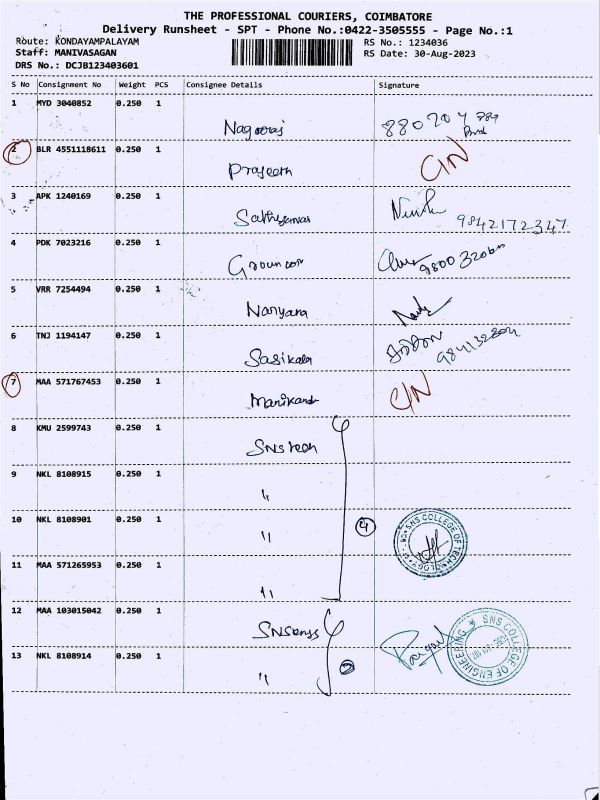 THE PROFESSIONAL COURIERS, COIMBATORE
Delivery Runsheet - SPT - Phone No.:0422-3505555 - Page No.:1
Route: KONDAYAMPALAYAM RS No.: 1234036
Staff: MANIVASAGAN RS Date: 30-Aug-2023
DRS No.: DCJB123403601
S No Consignment No Weight PCS Consignee Details Signature
1 MYD 3040852 0.250 1 Nagaraj
2 BLR 4551118611 0.250 1 Prajeeth C/N
3 APK 1240169 0.250 1 9842172347
4 PDK 7023216 0.250 1
5 VRR 7254494 0.250 1 Naryana
6 TNJ 1194147 0.250 1 Sasikala
7 MAA 571767453 0.250 1 Manikand C/N
8 KMU 2599743 0.250 1 SNS tech
9 NKL 8108915 0.250 1 "
10 NKL 8108901 0.250 1 " 4 SNS COLLEGE OF TECHNOLOGY
11 MAA 571265953 0.250 1 "
12 MAA 103015042 0.250 1 SNS COLLEGE OF ENGINEERING
13 NKL 8108914 0.250 1 " 2